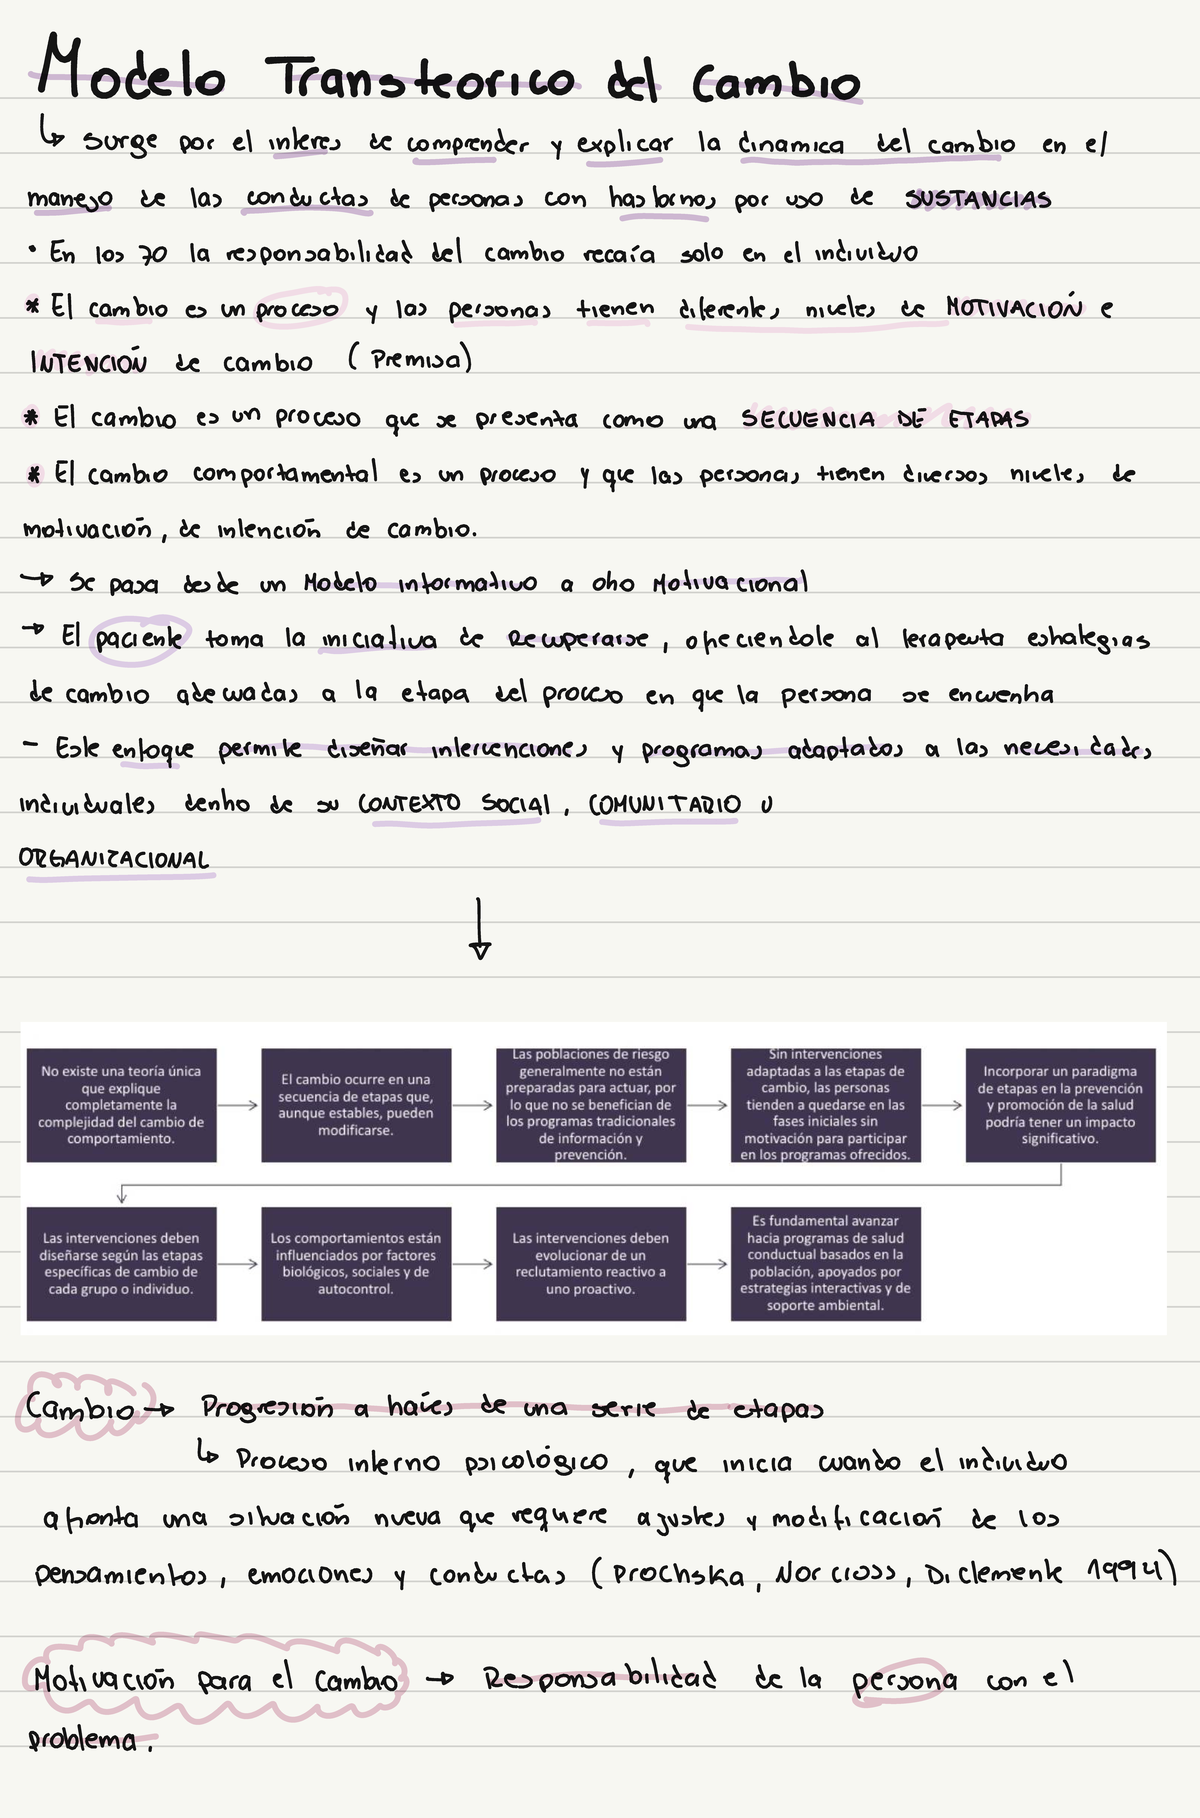 Modelo Transteorico del Cambio
↳ Surge por el interes de comprender y explicar la dinamica del cambio en el
manejo de las conductas de personas con trastornos por uso de SUSTANCIAS
• En los 70 la responsabilidad del cambio recaía solo en el individuo
* El cambio es un proceso y las personas tienen diferentes niveles de MOTIVACIÓN e
INTENCIÓN de cambio (Premisa)
* El cambio es un proceso que se presenta como una SECUENCIA DE ETAPAS
* El cambio comportamental es un proceso y que las personas tienen diversos niveles de
motivación, de intención de cambio.
→ Se pasa desde un Modelo informativo a otro Motivacional
→ El paciente toma la iniciativa de Recuperarse, ofreciendole al terapeuta estrategias
de cambio adecuadas a la etapa del proceso en que la persona se encuentra
- Este enfoque permite diseñar intervenciones y programas adaptados a las necesidades
individuales dentro de su CONTEXTO SOCIAL, COMUNITARIO U
ORGANIZACIONAL
No existe una teoría única
que explique
completamente la
complejidad del cambio de
comportamiento.
El cambio ocurre en una
secuencia de etapas que,
aunque estables, pueden
modificarse.
Las poblaciones de riesgo
generalmente no están
preparadas para actuar, por
lo que no se benefician de
los programas tradicionales
de información y
prevención.
Sin intervenciones
adaptadas a las etapas de
cambio, las personas
tienden a quedarse en las
fases iniciales sin
motivación para participar
en los programas ofrecidos.
Incorporar un paradigma
de etapas en la prevención
y promoción de la salud
podría tener un impacto
significativo.
Las intervenciones deben
diseñarse según las etapas
específicas de cambio de
cada grupo o individuo.
Los comportamientos están
influenciados por factores
biológicos, sociales y de
autocontrol.
Las intervenciones deben
evolucionar de un
reclutamiento reactivo a
uno proactivo.
Es fundamental avanzar
hacia programas de salud
conductual basados en la
población, apoyados por
estrategias interactivas y de
soporte ambiental.
Cambio → Progresión a través de una serie de etapas
↳ Proceso interno psicológico, que inicia cuando el individuo
afronta una situación nueva que requiere ajustes y modificación de los
pensamientos, emociones y conductas (Prochska, Norcross, Diclemente 1994)
Motivación para el Cambio → Responsabilidad de la persona con el
problema.